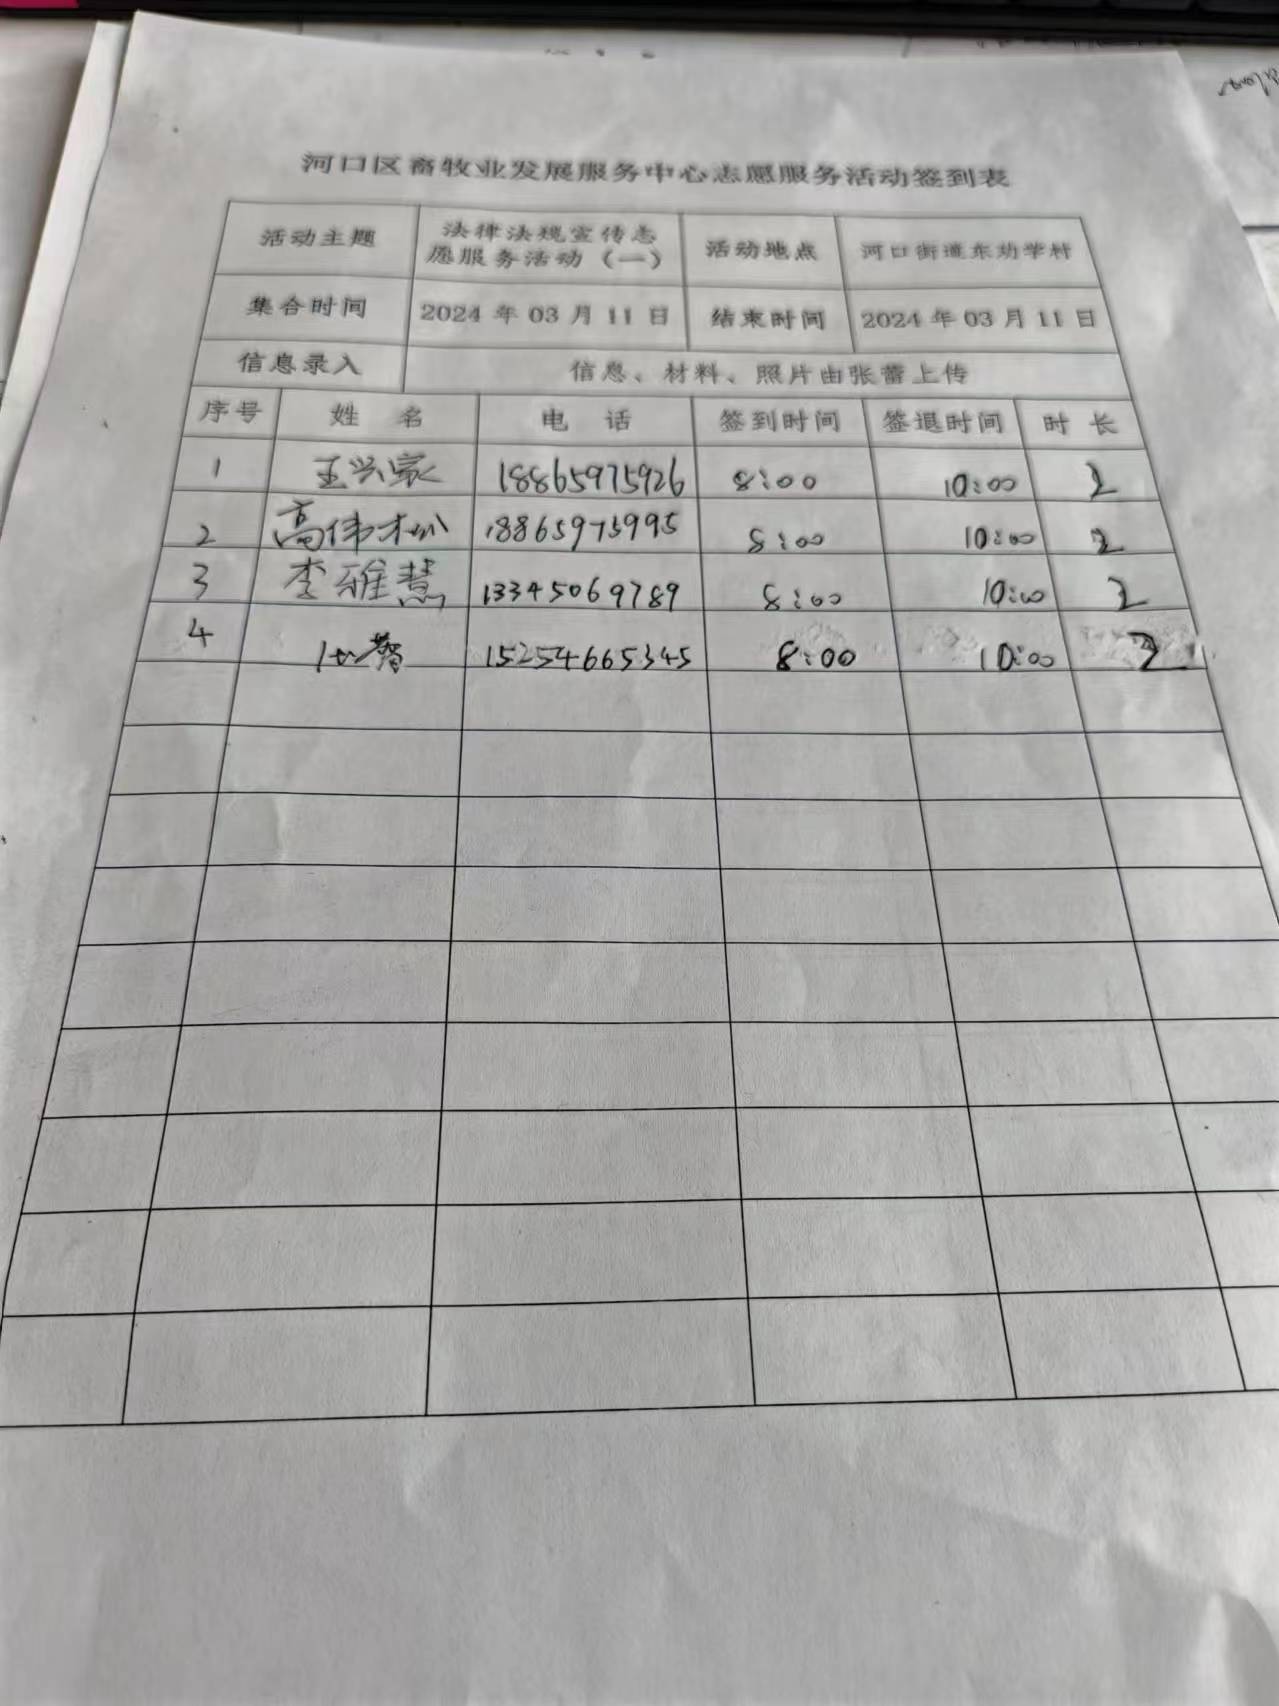 河口区畜牧业发展服务中心志愿服务活动签到表
活动主题 法律法规宣传志愿服务活动（一） 活动地点 河口街道东劝学村
集合时间 2024 年 03 月 11 日 结束时间 2024 年 03 月 11 日
信息录入 信息、材料、照片由张蕾上传
序号 姓 名 电 话 签到时间 签退时间 时 长
1 王兴家 18865975926 8:00 10:00 2
2 高伟松 18865975995 8:00 10:00 2
3 李雅慧 13345069789 8:00 10:00 2
4 15254665345 8:00 10:00 2